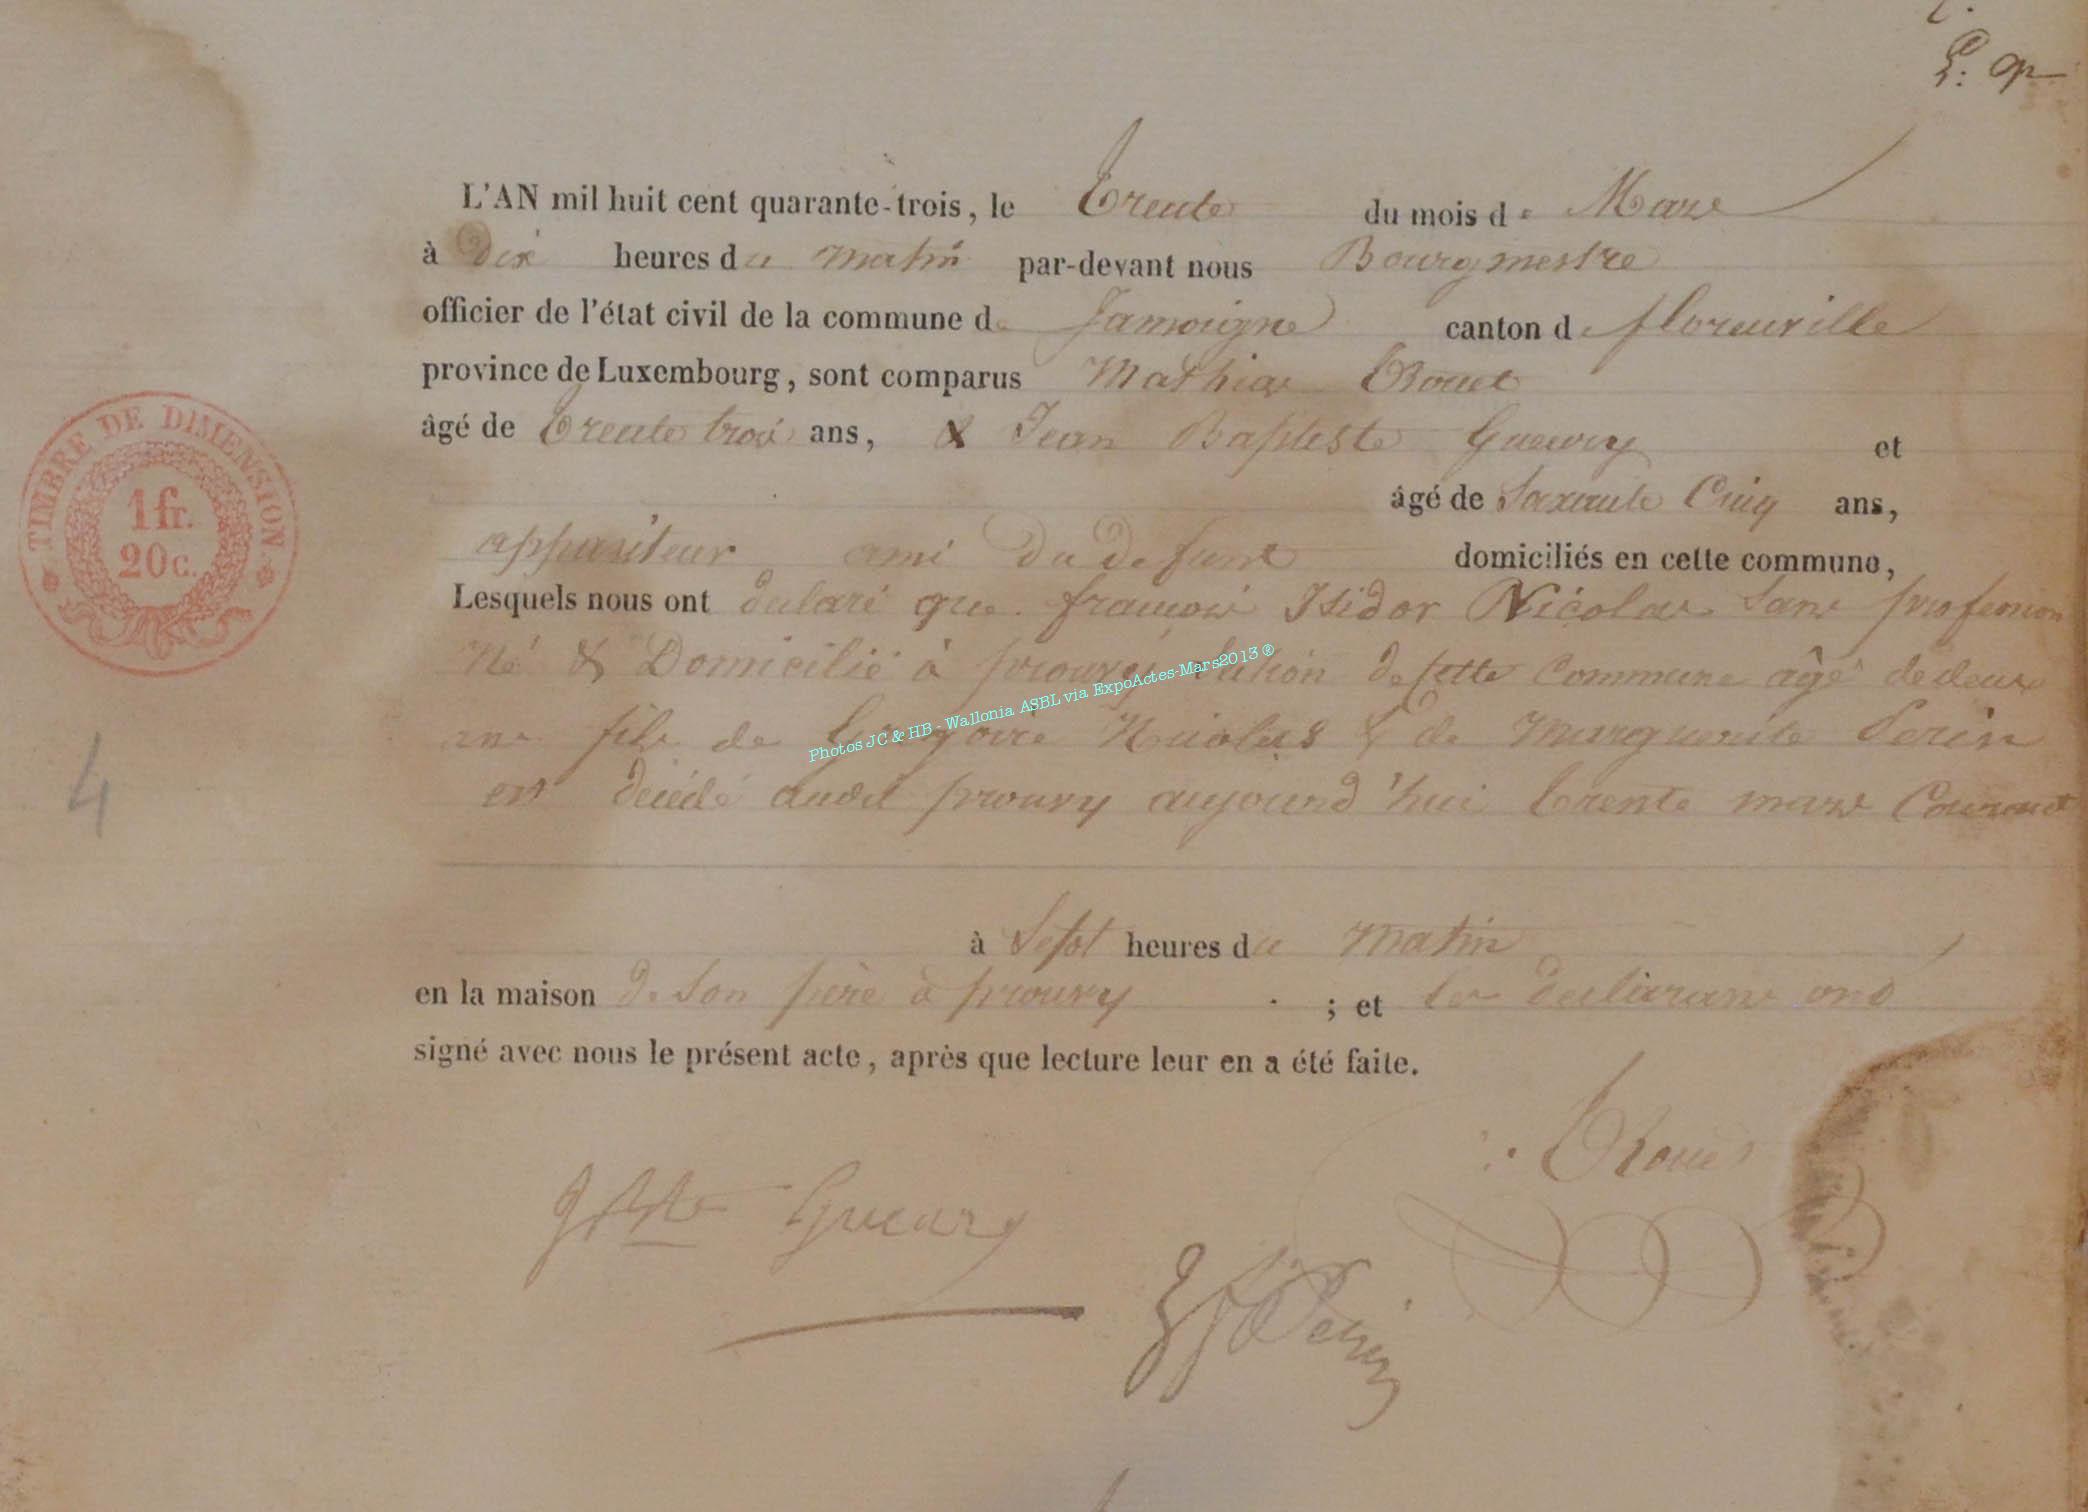 P. op
L'AN mil huit cent quarante-trois, le trente du mois de Mars
à dix heures du matin par-devant nous Bourgmestre
officier de l'état civil de la commune de Jamoigne canton de florenville
province de Luxembourg, sont comparus Mathias Rouet
âgé de trente trois ans, & Jean Baptiste Gueury et
âgé de Soixante Cinq ans,
appariteur ami du defunt domiciliés en cette commune,
Lesquels nous ont declaré que françois Isidor Nicolas Sans profession
Né & Domicilié à prouvy section de cette Commune âgé de deux
ans fils de Gregoire Nicolas & de Marguerite Perin
est décédé audit prouvy aujourd'hui trente mars Courant
à Sept heures du matin
en la maison de Son père à prouvy ; et les declarans ont
signé avec nous le présent acte, après que lecture leur en a été faite.
Rouet
Gueury
TIMBRE DE DIMENSION
1 fr.
20 c.
4
Photos JC & HB - Wallonia ASBL via ExpoActes-Mars2013 ®